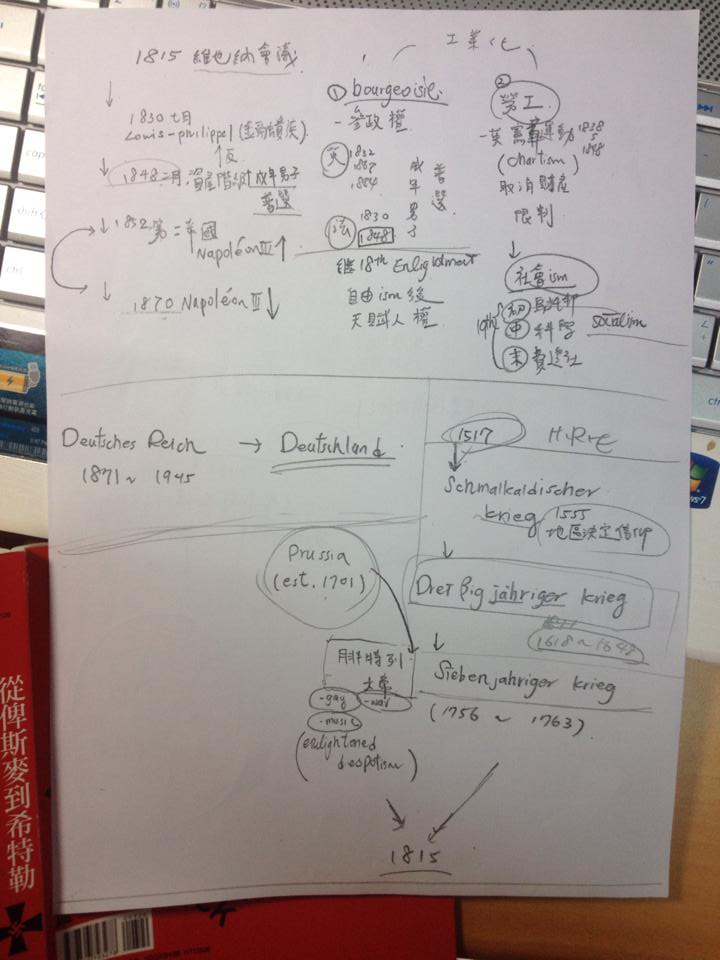 1815 維也納會議
1830 七月
Louis-philippe
反
1848 二月, 資產階級 成年男子
普選
1852 第二帝國
Napoléon III ↑
1870 Napoléon III ↓
工業化
① bourgeoisie.
- 參政權
英 1832
1867
1884
法 1830
1848
成年男子
普選
繼 18th Enlightment
自由ism 後
天賦人權
②
勞工
- 英 憲章運動 1838
1848
(chartism)
取消財產
限制
↓
社會ism
19th 初 烏托邦
中 科學
末 費邊社
socialism
Deutsches Reich → Deutschland.
1871 ~ 1945
1517 H.R.E
Schmalkaldischer
krieg 1555
地區決定信仰
Prussia
(est. 1701)
Dreißigjähriger krieg
1618 ~ 1648
腓特列
大帝
- gay - war
- music
(enlightened
despotism)
Siebenjahriger krieg
(1756 ~ 1763)
1815
從俾斯麥到希特勒
ctrl